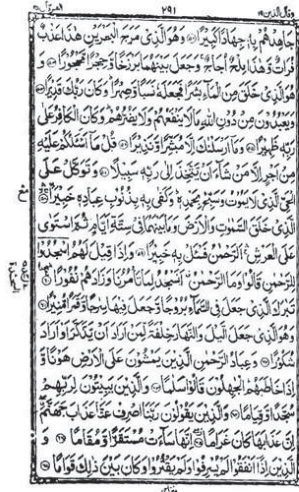 ۲۹۱
وقال الذين
جَاهِدْهُمْ بِهٖ جِهَادًا كَبِيْرًا وَهُوَ الَّذِيْ مَرَجَ الْبَحْرَيْنِ هٰذَا عَذْبٌ
فُرَاتٌ وَّهٰذَا مِلْحٌ اُجَاجٌ وَجَعَلَ بَيْنَهُمَا بَرْزَخًا وَّحِجْرًا مَّحْجُوْرًا
وَهُوَ الَّذِيْ خَلَقَ مِنَ الْمَآءِ بَشَرًا فَجَعَلَهٗ نَسَبًا وَّصِهْرًا وَكَانَ رَبُّكَ قَدِيْرًا
وَيَعْبُدُوْنَ مِنْ دُوْنِ اللّٰهِ مَا لَا يَنْفَعُهُمْ وَلَا يَضُرُّهُمْ وَكَانَ الْكَافِرُ عَلٰى
رَبِّهٖ ظَهِيْرًا وَمَآ اَرْسَلْنٰكَ اِلَّا مُبَشِّرًا وَّنَذِيْرًا قُلْ مَآ اَسْئَلُكُمْ عَلَيْهِ
مِنْ اَجْرٍ اِلَّا مَنْ شَآءَ اَنْ يَّتَّخِذَ اِلٰى رَبِّهٖ سَبِيْلًا وَتَوَكَّلْ عَلَى
الْحَيِّ الَّذِيْ لَا يَمُوْتُ وَسَبِّحْ بِحَمْدِهٖ وَكَفٰى بِهٖ بِذُنُوْبِ عِبَادِهٖ خَبِيْرًا
الَّذِيْ خَلَقَ السَّمٰوٰتِ وَالْاَرْضَ وَمَا بَيْنَهُمَا فِيْ سِتَّةِ اَيَّامٍ ثُمَّ اسْتَوٰى
عَلَى الْعَرْشِ اَلرَّحْمٰنُ فَسْئَلْ بِهٖ خَبِيْرًا وَاِذَا قِيْلَ لَهُمُ اسْجُدُوْا
لِلرَّحْمٰنِ قَالُوْا وَمَا الرَّحْمٰنُ اَنَسْجُدُ لِمَا تَاْمُرُنَا وَزَادَهُمْ نُفُوْرًا
تَبٰرَكَ الَّذِيْ جَعَلَ فِي السَّمَآءِ بُرُوْجًا وَّجَعَلَ فِيْهَا سِرٰجًا وَّقَمَرًا مُّنِيْرًا
وَهُوَ الَّذِيْ جَعَلَ الَّيْلَ وَالنَّهَارَ خِلْفَةً لِّمَنْ اَرَادَ اَنْ يَّذَّكَّرَ اَوْ اَرَادَ
شُكُوْرًا وَعِبَادُ الرَّحْمٰنِ الَّذِيْنَ يَمْشُوْنَ عَلَى الْاَرْضِ هَوْنًا وَّ
اِذَا خَاطَبَهُمُ الْجٰهِلُوْنَ قَالُوْا سَلٰمًا وَالَّذِيْنَ يَبِيْتُوْنَ لِرَبِّهِمْ
سُجَّدًا وَّقِيَامًا وَالَّذِيْنَ يَقُوْلُوْنَ رَبَّنَا اصْرِفْ عَنَّا عَذَابَ جَهَنَّمَ
اِنَّ عَذَابَهَا كَانَ غَرَامًا اِنَّهَا سَآءَتْ مُسْتَقَرًّا وَّمُقَامًا وَ
الَّذِيْنَ اِذَآ اَنْفَقُوْا لَمْ يُسْرِفُوْا وَلَمْ يَقْتُرُوْا وَكَانَ بَيْنَ ذٰلِكَ قَوَامًا